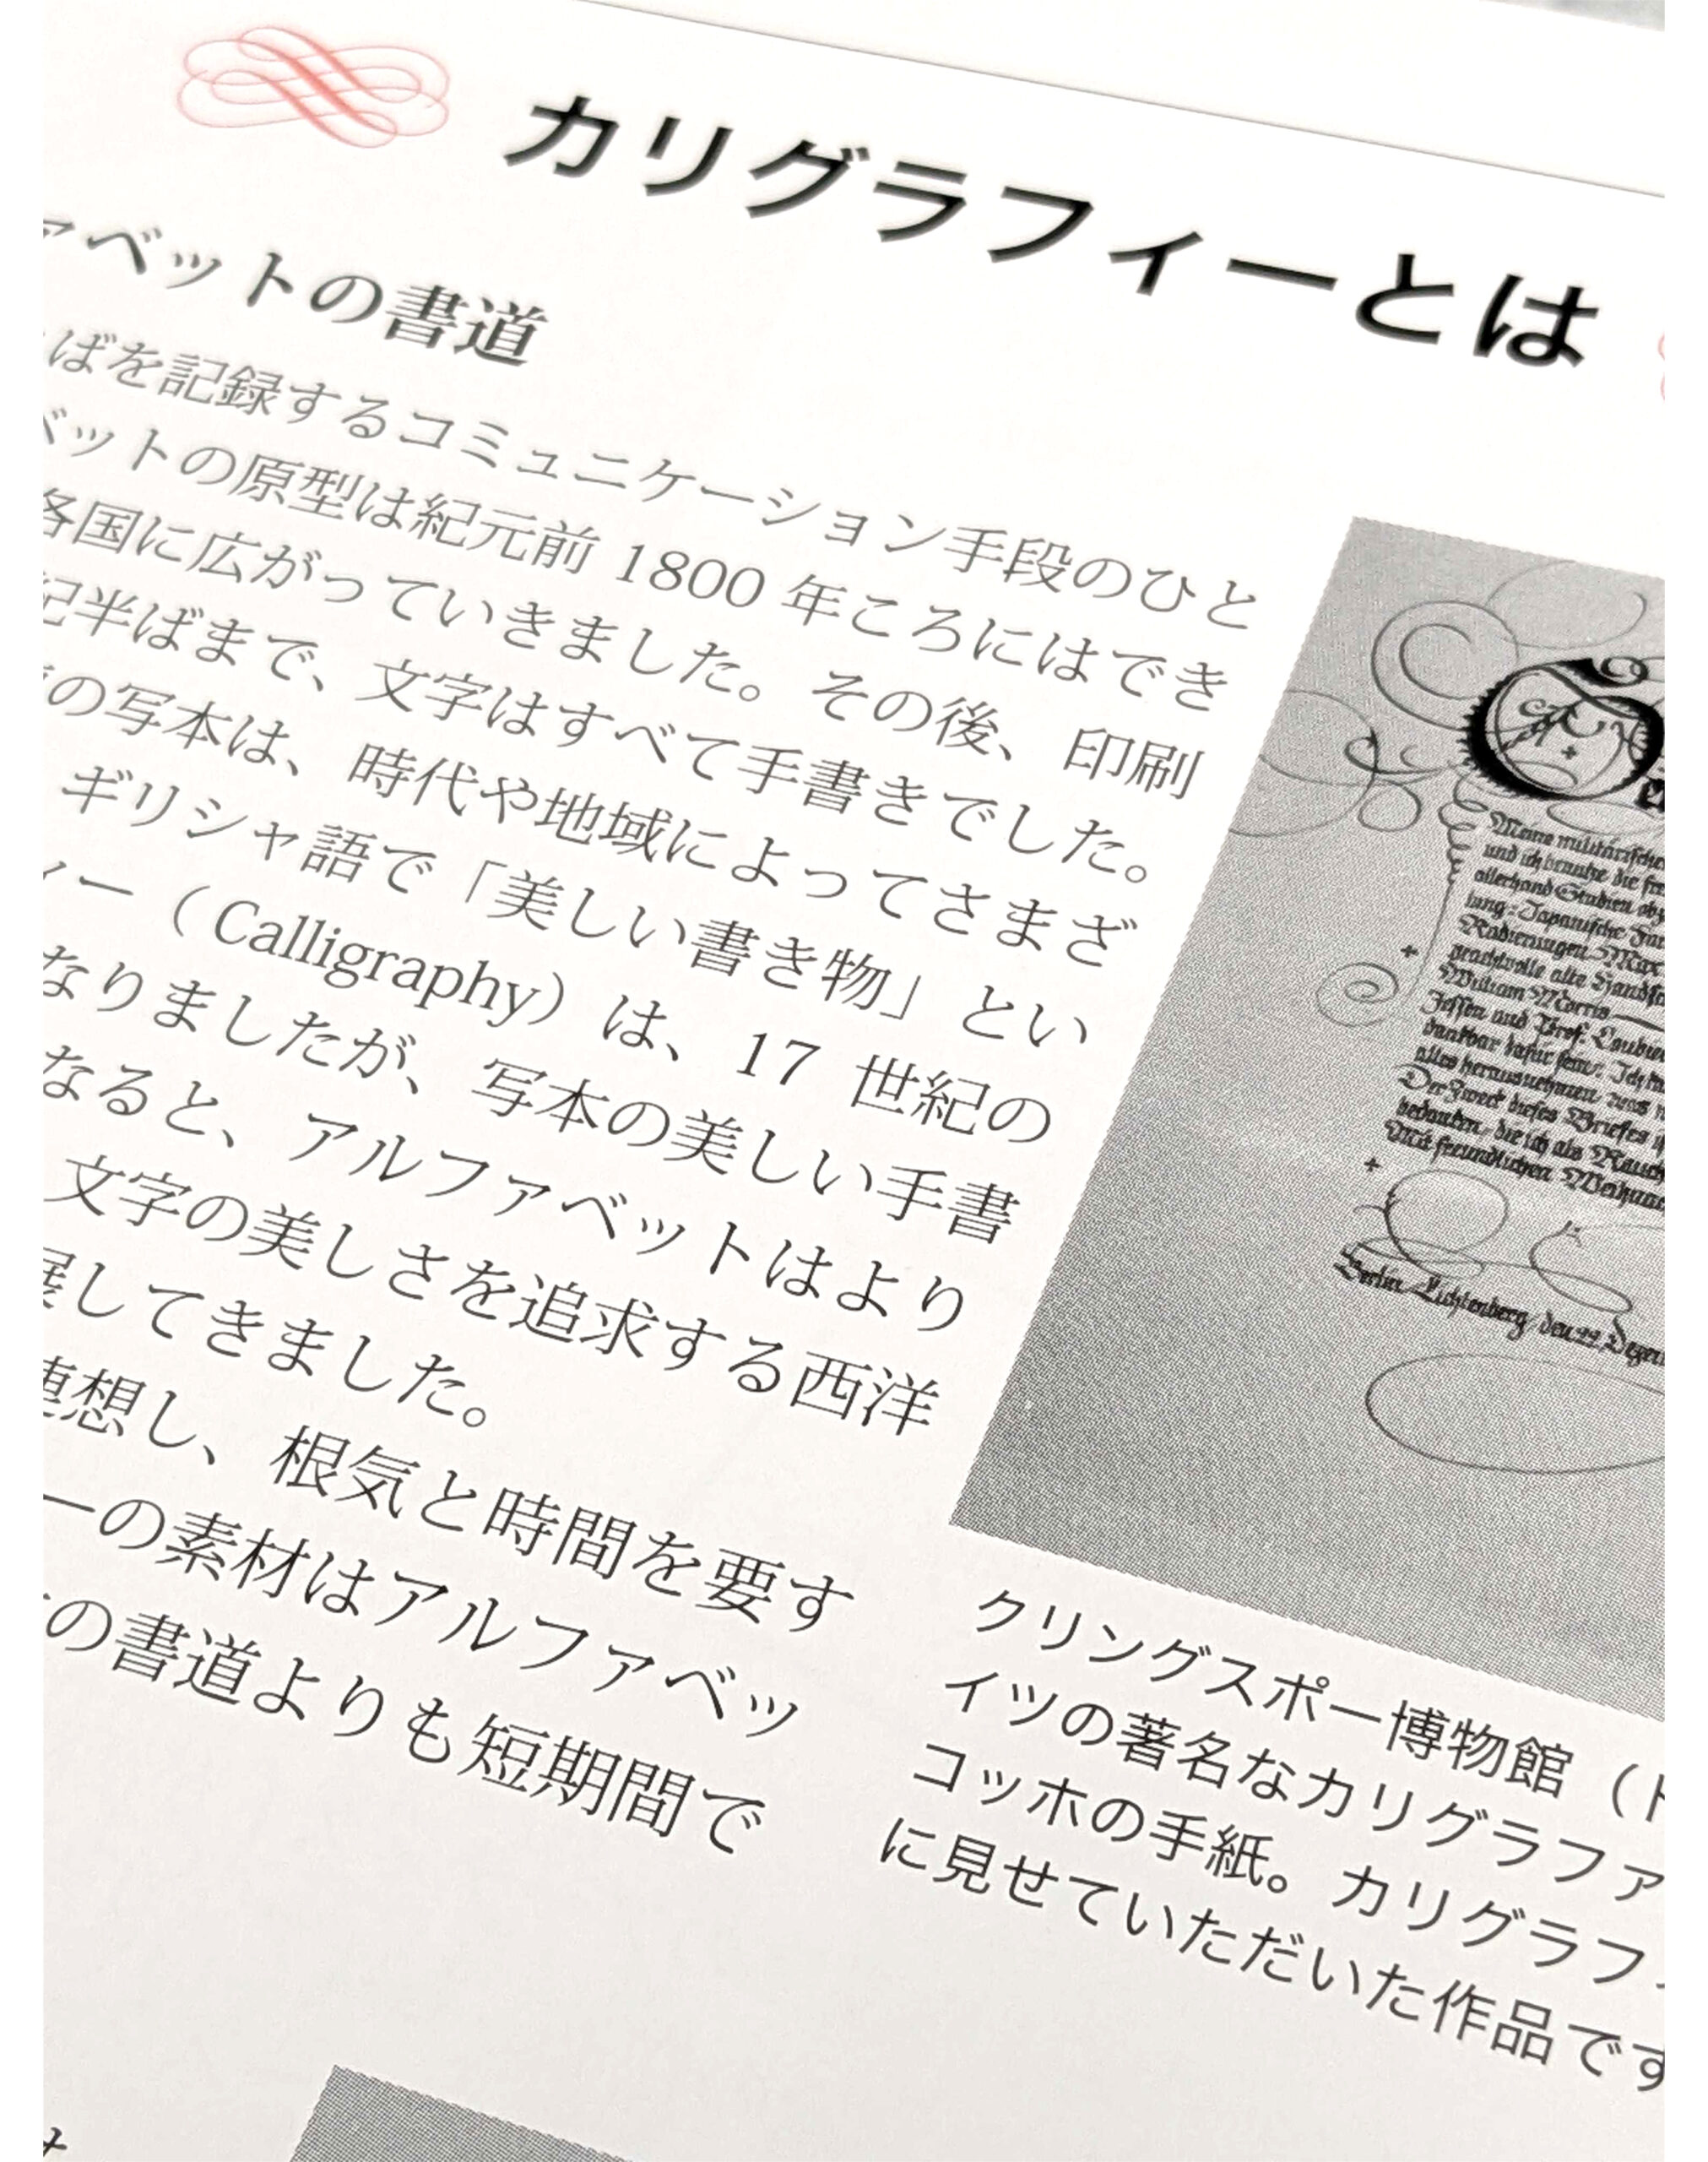 カリグラフィーとは
ァベットの書道
ばを記録するコミュニケーション手段のひと
ベットの原型は紀元前 1800 年ころにはでき
各国に広がっていきました。その後、印刷
紀半ばまで、文字はすべて手書きでした。
の写本は、時代や地域によってさまざ
ギリシャ語で「美しい書き物」とい
ィー（Calligraphy）は、17 世紀の
なりましたが、写本の美しい手書
なると、アルファベットはより
文字の美しさを追求する西洋
展してきました。
連想し、根気と時間を要す
ーの素材はアルファベッ
の書道よりも短期間で
Meine militärische
und ich benutze die
allerhand Studien
lung: Japanische
Radierungen, Max
prachtvolle alte
William Morris
Jessen und Prof.
dankbar dafür
alles herausnehmen, was
Der Zweck dieses Briefes
bedanken, die ich als
Mit freundlichen
Berlin-Lichtenberg, den 22.
クリングスポー博物館（ド
イツの著名なカリグラファ
コッホの手紙。カリグラフ
に見せていただいた作品です